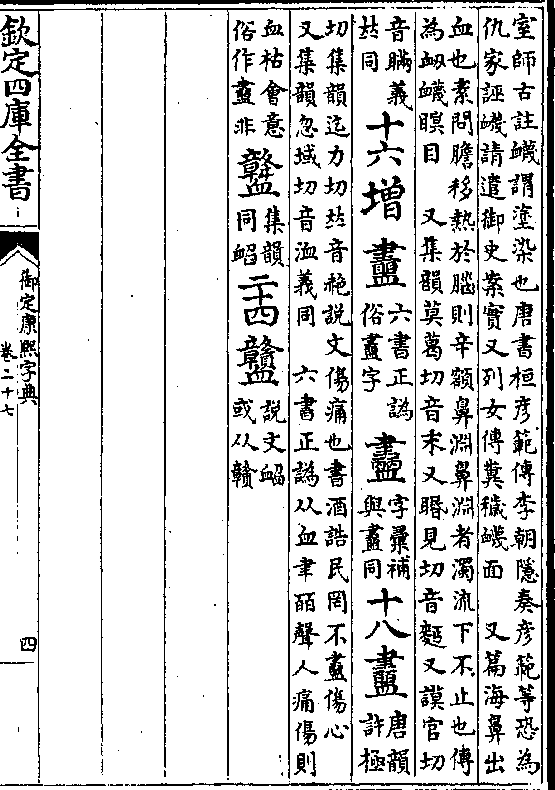 室師古註衊謂塗染也唐書桓彥範傳李朝隱奏彥範等恐為
仇家誣衊請遣御史案實又列女傳糞穢衊面 又篇海鼻出
血也素問膽移熱於腦則辛頞鼻淵鼻淵者濁流下不止也傳
為衄衊瞑目 又集韻莫葛切音末又眠見切音麪又謨官切
音瞞義
𠀤同
十六增
𧗎
六書正譌
俗衋字
𧗏
字彙補
與衋同
十八
衋
唐韻
許極
切集韻迄力切𠀤音赩說文傷痛也書酒誥民罔不衋傷心
又集韻忽域切音洫義同 六書正譌从血聿皕聲人痛傷則
血枯會意
俗作𧗎非
集韻
同衉
二十四
說文衉
或从贛
欽定四庫全書
御定康熙字典
卷二十七
四